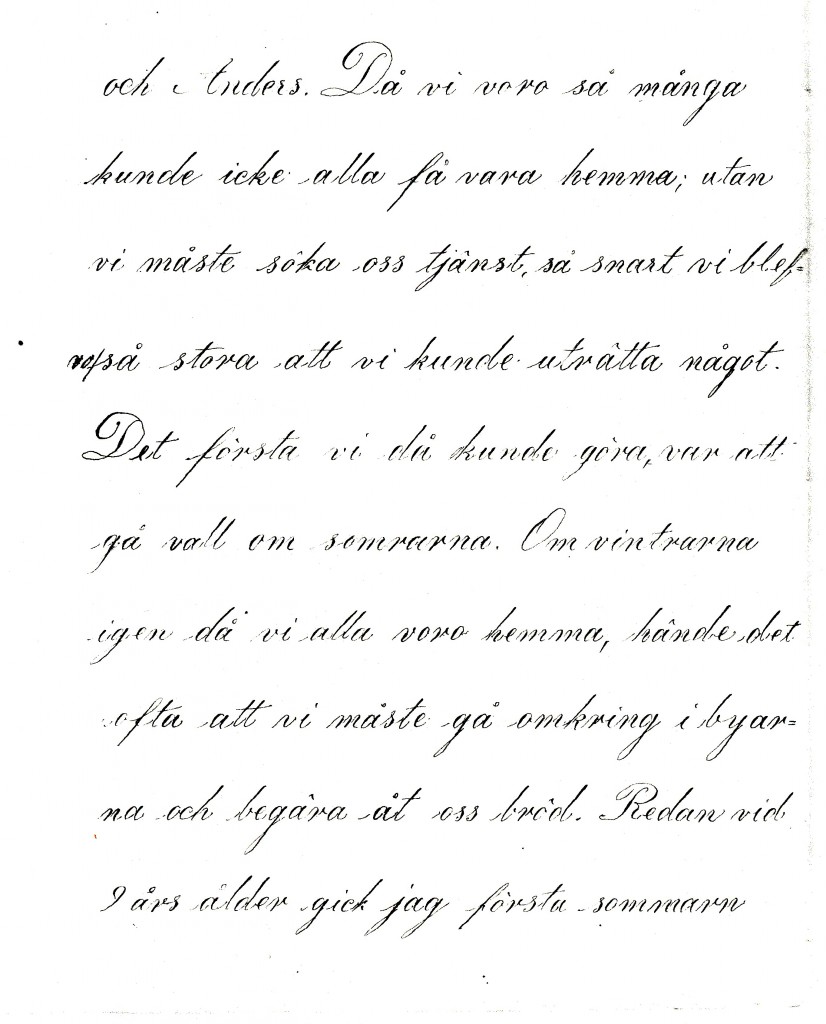 och Anders. Då vi voro så många
kunde icke alla få vara hemma; utan
vi måste söka oss tjänst, så snart vi blef-
vo så stora att vi kunde uträtta något.
Det första vi då kunde göra, var att
gå vall om somrarna. Om vintrarna
igen då vi alla voro hemma, hände det
ofta att vi måste gå omkring i byar-
na och begära åt oss bröd. Redan vid
9 års ålder gick jag första sommarn